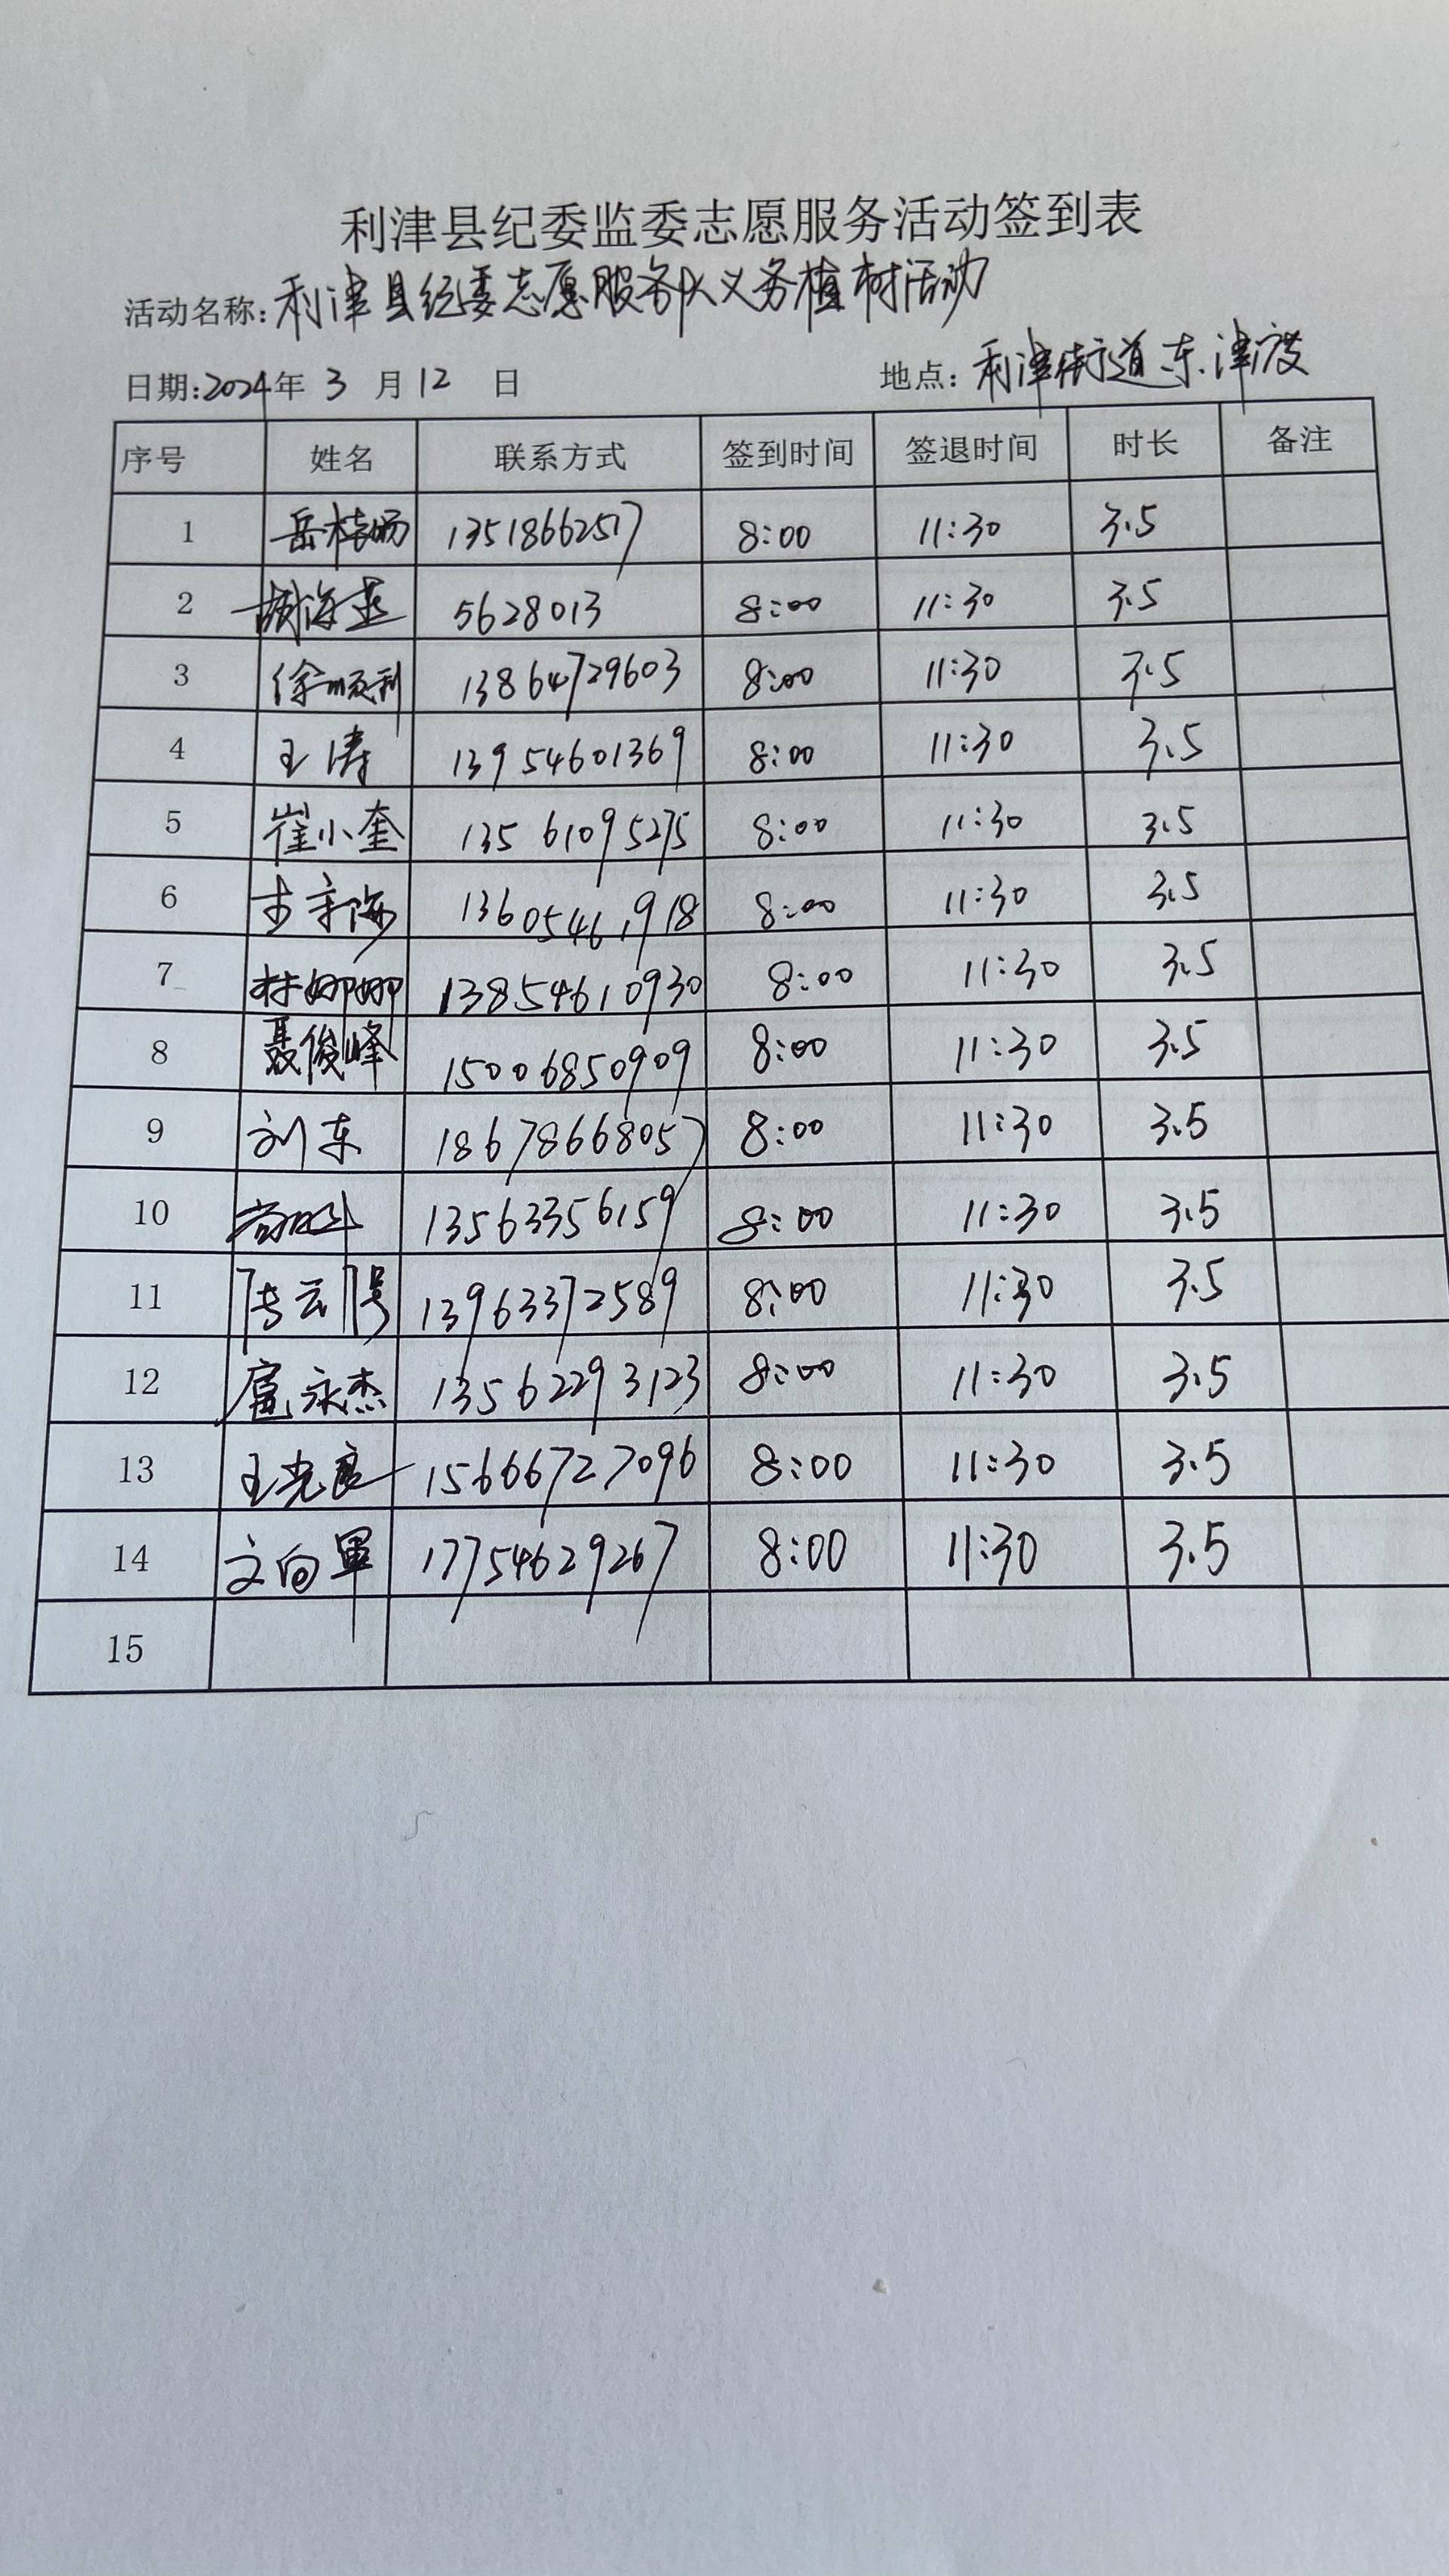 利津县纪委监委志愿服务活动签到表
活动名称:利津县纪委志愿服务队义务植树活动
日期:2024年 3 月 12 日 地点:利津街道东津渡
序号 姓名 联系方式 签到时间 签退时间 时长 备注
1 13518662517 8:00 11:30 3.5
2 5628013 8:00 11:30 3.5
3 徐顺利 13864729603 8:00 11:30 3.5
4 王涛 13954601369 8:00 11:30 3.5
5 崔小奎 13561095275 8:00 11:30 3.5
6 13605461918 8:00 11:30 3.5
7 林娜娜 13854610930 8:00 11:30 3.5
8 聂俊峰 15006850909 8:00 11:30 3.5
9 刘东 18678668057 8:00 11:30 3.5
10 13563356159 8:00 11:30 3.5
11 13963372589 8:00 11:30 3.5
12 扈永杰 13562293123 8:00 11:30 3.5
13 王光良 15666727096 8:00 11:30 3.5
14 文向军 17754629267 8:00 11:30 3.5
15